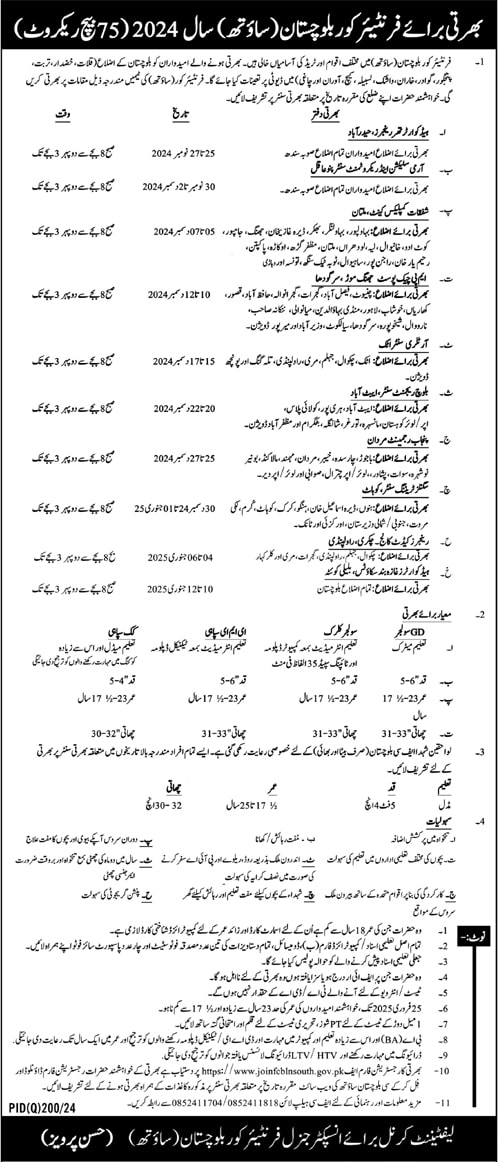 بھرتی برائے فرنٹیئر کور بلوچستان (ساؤتھ) سال 2024 (75 بیچ ریکروٹ)
1- فرنٹیئر کور بلوچستان (ساؤتھ) میں مختلف اقوام اور ٹریڈ کی آسامیاں خالی ہیں۔ بھرتی ہونے والے امیدواران کو بلوچستان کے اضلاع (قلات، خضدار، تربت،
پنجگور، گوادر، خاران، واشک، لسبیلہ، کیچ، آوران اور چاغی) میں ڈیوٹی پر تعینات کیا جائے گا۔ فرنٹیئر کور (ساؤتھ) کی ٹیمیں مندرجہ ذیل مقامات پر بھرتی کریں
گی۔ خواہشمند حضرات اپنے ضلع کی مقررہ تاریخ پر متعلقہ بھرتی سنٹر پر تشریف لائیں۔
بھرتی دفتر تاریخ وقت
ا۔ ہیڈ کوارٹر تھر رینجرز، حیدرآباد
بھرتی برائے اضلاع امیدواران تمام اضلاع صوبہ سندھ 25 تا 27 نومبر 2024 صبح 8 بجے سے دوپہر 3 بجے تک
ب۔ آرمی سلیکشن اینڈ ریکروٹمنٹ سنٹر پنوعاقل
بھرتی برائے اضلاع امیدواران تمام اضلاع صوبہ سندھ۔ 30 نومبر تا 2 دسمبر 2024 صبح 8 بجے سے دوپہر 3 بجے تک
پ۔ شفقات کمپلیکس کینٹ، ملتان
بھرتی برائے اضلاع: بہاولپور، بہاولنگر، بھکر، ڈیرہ غازیخان، جھنگ، جامپور، 05 تا 07 دسمبر 2024 صبح 8 بجے سے دوپہر 3 بجے تک
کوٹ ادو، خانیوال، لیہ، لودھراں، ملتان، مظفر گڑھ، اوکاڑہ، پاکپتن،
رحیم یار خان، راجن پور، ساہیوال، ٹوبہ ٹیک سنگھ، تونسہ اور وہاڑی
ت۔ ایم پی چیک پوسٹ جھنگ موڑ، سرگودھا
بھرتی برائے اضلاع: چنیوٹ، فیصل آباد، گجرات، گجرانوالہ، حافظ آباد، قصور، 10 تا 12 دسمبر 2024 صبح 8 بجے سے دوپہر 3 بجے تک
کھاریاں، خوشاب، لاہور، منڈی بہاؤالدین، میانوالی، ننکانہ صاحب،
نارووال، شیخوپورہ، سرگودھا، سیالکوٹ، وزیر آباد اور میرپور ڈویژن۔
ٹ۔ آرٹلری سنٹر اٹک
بھرتی برائے اضلاع: اٹک، چکوال، جہلم، مری، راولپنڈی، تلہ گنگ اور پونچھ 15 تا 17 دسمبر 2024 صبح 8 بجے سے دوپہر 3 بجے تک
ڈویژن۔
ث۔ بلوچ رجمنٹ سنٹر، ایبٹ آباد
بھرتی برائے اضلاع: ایبٹ آباد، ہری پور، کولائی پلاس، 20 تا 22 دسمبر 2024 صبح 8 بجے سے دوپہر 3 بجے تک
اپر/لوئر کوہستان، مانسہرہ، تورغر، شانگلہ، بٹگرام اور مظفر آباد ڈویژن۔
ج۔ پنجاب رجمنٹ مردان
بھرتی برائے اضلاع: باجوڑ، چارسدہ، خیبر، مردان، مہمند، مالاکنڈ، بونیر 25 تا 27 دسمبر 2024 صبح 8 بجے سے دوپہر 3 بجے تک
نوشہرہ، سوات، پشاور، لوئر/اپر چترال، صوابی اور لوئر/اپر دیر۔
چ۔ سگنلز ٹریننگ سنٹر، کوہاٹ
بھرتی برائے اضلاع: بنوں، ڈیرہ اسماعیل خان، ہنگو، کرک، کوہاٹ، کرم، لکی 30 دسمبر 24 تا 01 جنوری 25 صبح 8 بجے سے دوپہر 3 بجے تک
مروت، جنوبی/شمالی وزیرستان، اورکزئی اور ٹانک۔
ح۔ رینجرز کیڈٹ کالج، چکری، راولپنڈی
بھرتی برائے اضلاع: چکوال، جہلم، راولپنڈی، گجرات، مری اور کلر کہار 04 تا 06 جنوری 2025 صبح 8 بجے سے دوپہر 3 بجے تک
خ۔ ہیڈ کوارٹرز غازہ بند سکاؤٹس، بلیلی کوئٹہ
بھرتی برائے اضلاع: تمام اضلاع بلوچستان 10 تا 12 جنوری 2025 صبح 8 بجے سے دوپہر 3 بجے تک
2- معیار برائے بھرتی
GD سولجر سولجر کلرک ای ایم ای سپاہی کک سپاہی
ا۔ تعلیم میٹرک تعلیم انٹرمیڈیٹ بمعہ کمپیوٹر ڈپلومہ تعلیم انٹرمیڈیٹ بمعہ ٹیکنیکل ڈپلومہ تعلیم مڈل اور اس سے زیادہ
اور ٹائپنگ سپیڈ 35 الفاظ فی منٹ کوکنگ میں مہارت رکھنے والوں کو ترجیح دی جائیگی
ب۔ قد "6-5 قد "6-5 قد "6-5 قد "4-5
پ۔ عمر 23-½ 17 عمر 23-½ 17 سال عمر 23-½ 17 سال عمر 23-½ 17 سال
سال
ت۔ چھاتی "33-31 چھاتی "33-31 چھاتی "33-31 چھاتی "32-30
3- لواحقین شہدا ایف سی بلوچستان (صرف بیٹا اور بھائی) کے لئے خصوصی رعایت رکھی گئی ہے۔ ایسے تمام افراد مندرجہ بالا تاریخوں میں متعلقہ بھرتی سنٹر پر بھرتی
کے لئے تشریف لائیں۔
تعلیم قد عمر چھاتی
مڈل 5 فٹ 4 انچ ½ 17 تا 25 سال 32 -30 انچ
4- سہولیات
ا۔ تنخواہ میں پرکشش اضافہ ب۔ مفت رہائش/کھانا پ۔ دوران سروس آپکے بیوی اور بچوں کا مفت علاج
ت۔ بچوں کی مختلف تعلیمی اداروں میں تعلیم کی سہولت ٹ۔ اندرون ملک بذریعہ روڈ، ریلوے اور پی آئی اے سفر کرنے ث۔ سال میں دو ماہ کی چھٹی بمع تنخواہ اور بوقت ضرورت
کی صورت میں نصف کرایہ کی سہولت ایمرجنسی چھٹی
ج۔ کارکردگی کی بنا پر اقوام متحدہ کے ساتھ بیرون ملک چ۔ شہداء کے بچوں کیلئے مفت تعلیم اور رہائش کیلئے گھر ح۔ پنشن گریجویٹی کی سہولت
سروس کے مواقع
نوٹ:-
1- وہ حضرات جن کی عمر 18 سال سے کم ہے اُن کے لئے اسمارٹ کارڈ اور زائد عمر کے لئے کمپیوٹرائزڈ شناختی کارڈ لازمی ہے۔
2- تمام اصل تعلیمی اسناد/کمپیوٹرائزڈ فارم (ب)، ڈومیسائل، تمام دستاویزات کی تین عدد مصدقہ فوٹو سٹیٹ اور چار عدد پاسپورٹ سائز فوٹو اپنے ہمراہ لائیں۔
3- جعلی تعلیمی اسناد پیش کرنے والے کو حوالہ پولیس کیا جائے گا۔
4- وہ حضرات جن پر ایف آئی آر درج ہو یا سزا یافتہ ہوں وہ بھرتی کے لئے نا اہل ہوگا۔
5- ٹیسٹ/انٹرویو کے لئے آنے والے ٹی اے/ڈی اے کے حقدار نہیں ہوں گے۔
6- 25 فروری 2025 تک، خواہشمند امیدواروں کی عمر کی حد 23 سال سے زیادہ اور ½ 17 سے کم نہ ہو۔
7- 1 میل دوڑ کے ٹیسٹ کے لئے PT شوز، تحریری ٹیسٹ کے لئے قلم اور امتحانی گتہ ساتھ لائیں۔
8- بی اے (BA) اور اس سے زیادہ تعلیم اور کمپیوٹر میں مہارت اور ڈی اے ای/ٹیکنیکل ڈپلومہ رکھنے والوں کو ترجیح اور عمر میں ایک سال تک رعایت دی جائیگی۔
9- ڈرائیونگ میں مہارت رکھنے اور LTV/HTV ڈرائیونگ لائسنس یافتہ جوانوں کو ترجیح دی جائیگی۔
10- بھرتی کا رجسٹریشن فارم ایف https://www.joinfcblnsouth.gov.pk پر دستیاب ہے بھرتی کے خواہشمند حضرات رجسٹریشن فارم ڈاؤنلوڈ اور
فل کر کے سی بلوچستان ساؤتھ کی ویب سائٹ مقررہ تاریخ پر متعلقہ بھرتی سنٹر پر مذکورہ کاغذات کے ہمراہ بھرتی ہونے کے لئے تشریف لائیں۔
11- مزید معلومات اور رہنمائی کے لئے ایف سی ہیلپ لائن 0852411818/0852411704 سے رابطہ کریں۔
PID(Q)200/24
لیفٹیننٹ کرنل برائے انسپکٹر جنرل فرنٹیئر کور بلوچستان (ساؤتھ) (حسن پرویز)